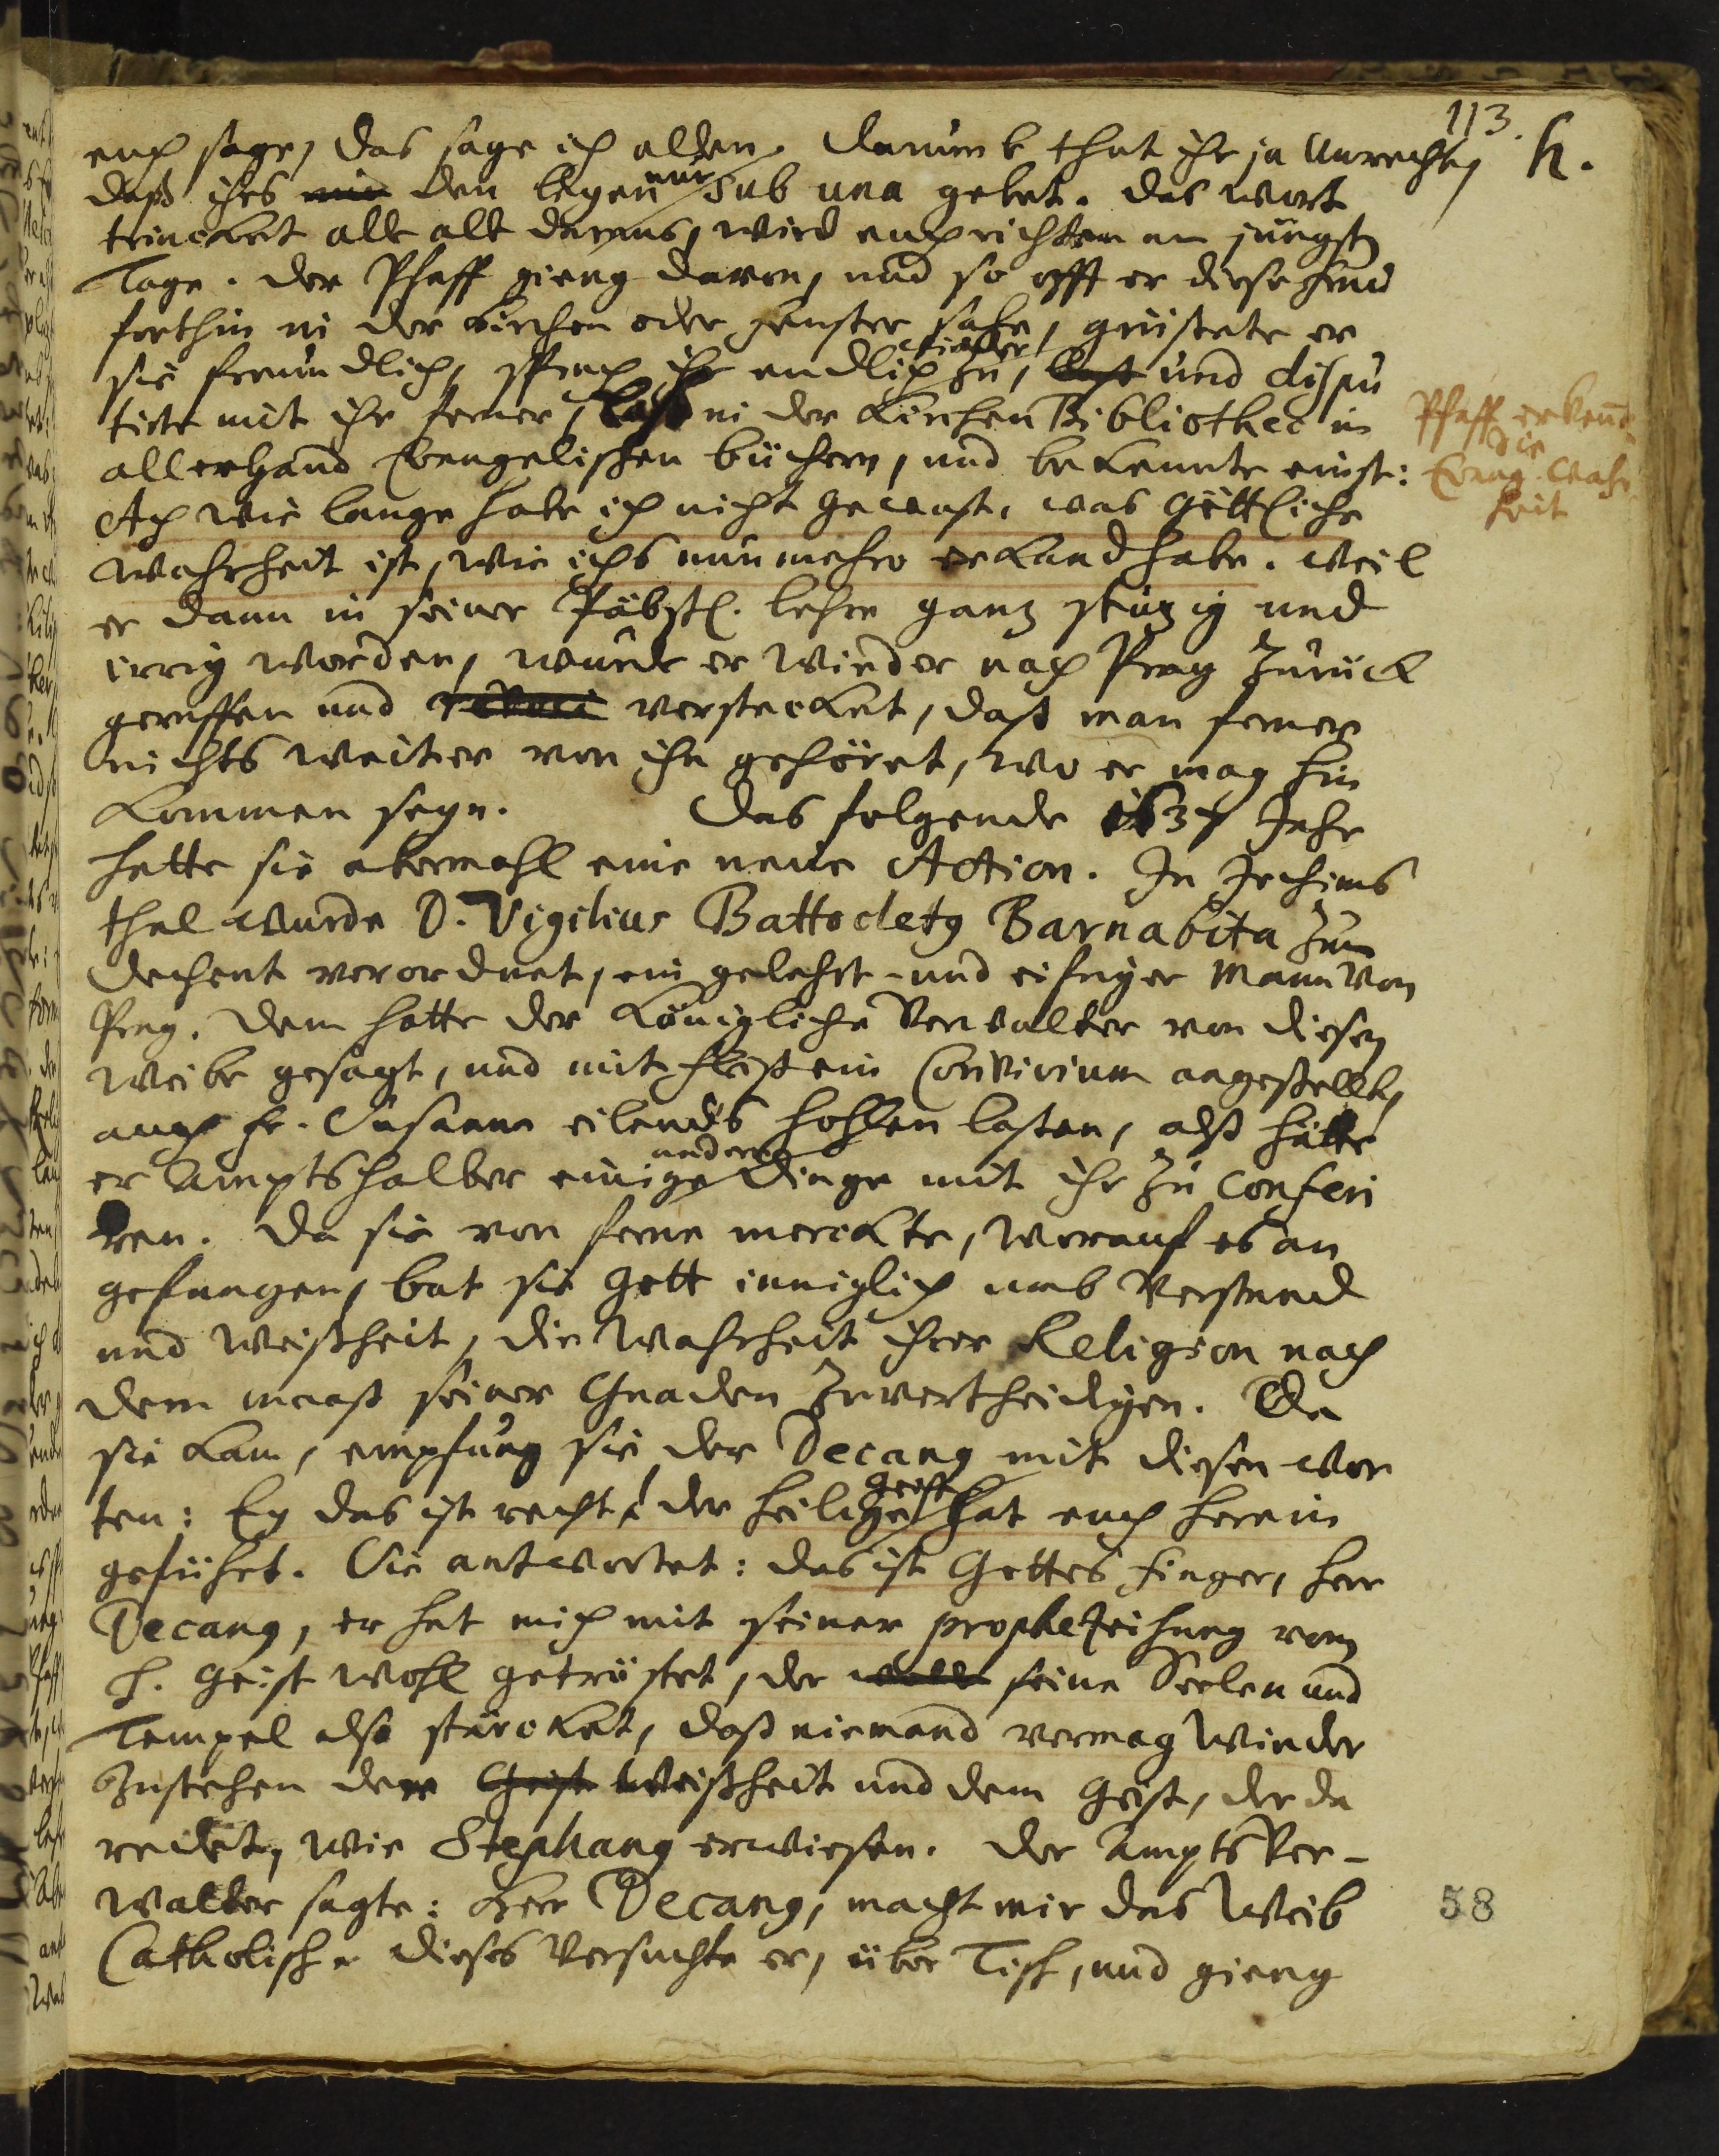 113.
h.
euch sage, das sage ich allen. Darumb that ihr ja Unrecht,
daß ihrs nur den leyen nur sub una gebet. das wort
trincket alle alle daraus, wird euch richten am jüngst
Tage. der Pfaff gieng davon, und so offt er diese
forthin in der Kirchen oder fenster sahe, grüssete er
sie freundlich, sprach ihr endlich zu, und dispu
tirte mit ihr ferner, laß in der Kirchen Bibliothec in
allerhand Evangelischen büchern, und bekennte einst:
Ach wie lange habe ich nicht gewust, was Göttliche
Wahrheit ist, wie ichs nunmehro erkand habe. Weil
er dann in seiner Päbstl. lehre ganz stuzig und
irrig worden, wurde er wieder nach Prag zurück
geruffen und verstecket, daß man ferner
nichts weiter von ihn gehöret, wo er mag hin
kommen seyn. Das folgende 1637 Jahr
hatte sie abermahl eine neue Action. In Jochims
thal wurde D. Vigilius Battodetg Barnabita zum
dechent verordnet, ein gelehrt- und eifriger Mann von
Prag. Dem hatte der Königliche Verwalter von diesen
Weibe gesagt, und mit fleiß ein Convivium angestellt,
auch Fr. Susann eilends hohlen lassen, alß hätte
er Amptshalber einige andere Dinge mit ihr zu conferi
ren. Da sie von ferne merckte, worauf es an
gefangen, bat sie Gott inniglich umb Verstand
und Weißheit, die Wahrheit ihrer Religion nach
dem maaß seiner Gnaden zuvertheidigen. Da
sie kam, empfung sie der Decang mit diesen wor
ten: Ey das ist recht! der heilige Geist hat euch herein
geführt. Sie antwortet: das ist Gottes finger, herr
Decang, er hat mich mit seiner prophezeihung vom
H. Geist wohl getröstet, der seine Seelen und
Tempel also stärcket, daß niemand vermag wieder
zustehen der Geist Weißheit und dem Geist, der da
redet, wie Stephang erwiesen. Der AmptsVer-
walter sagte: Herr Decang, macht mir das Weib
Catholisch. dieses versuchte er, über Tisch, und gieng
Pfaff erkennt
die
Evang. Wahr
heit
58